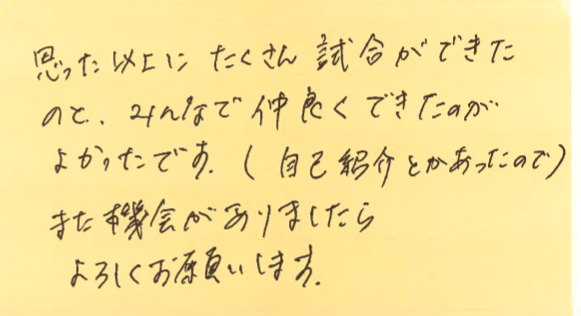 思った以上に たくさん 試合ができた
のと、みんなで仲良くできたのが
よかったです。(自己紹介とかあったので)
また機会がありましたら
よろしくお願いします。